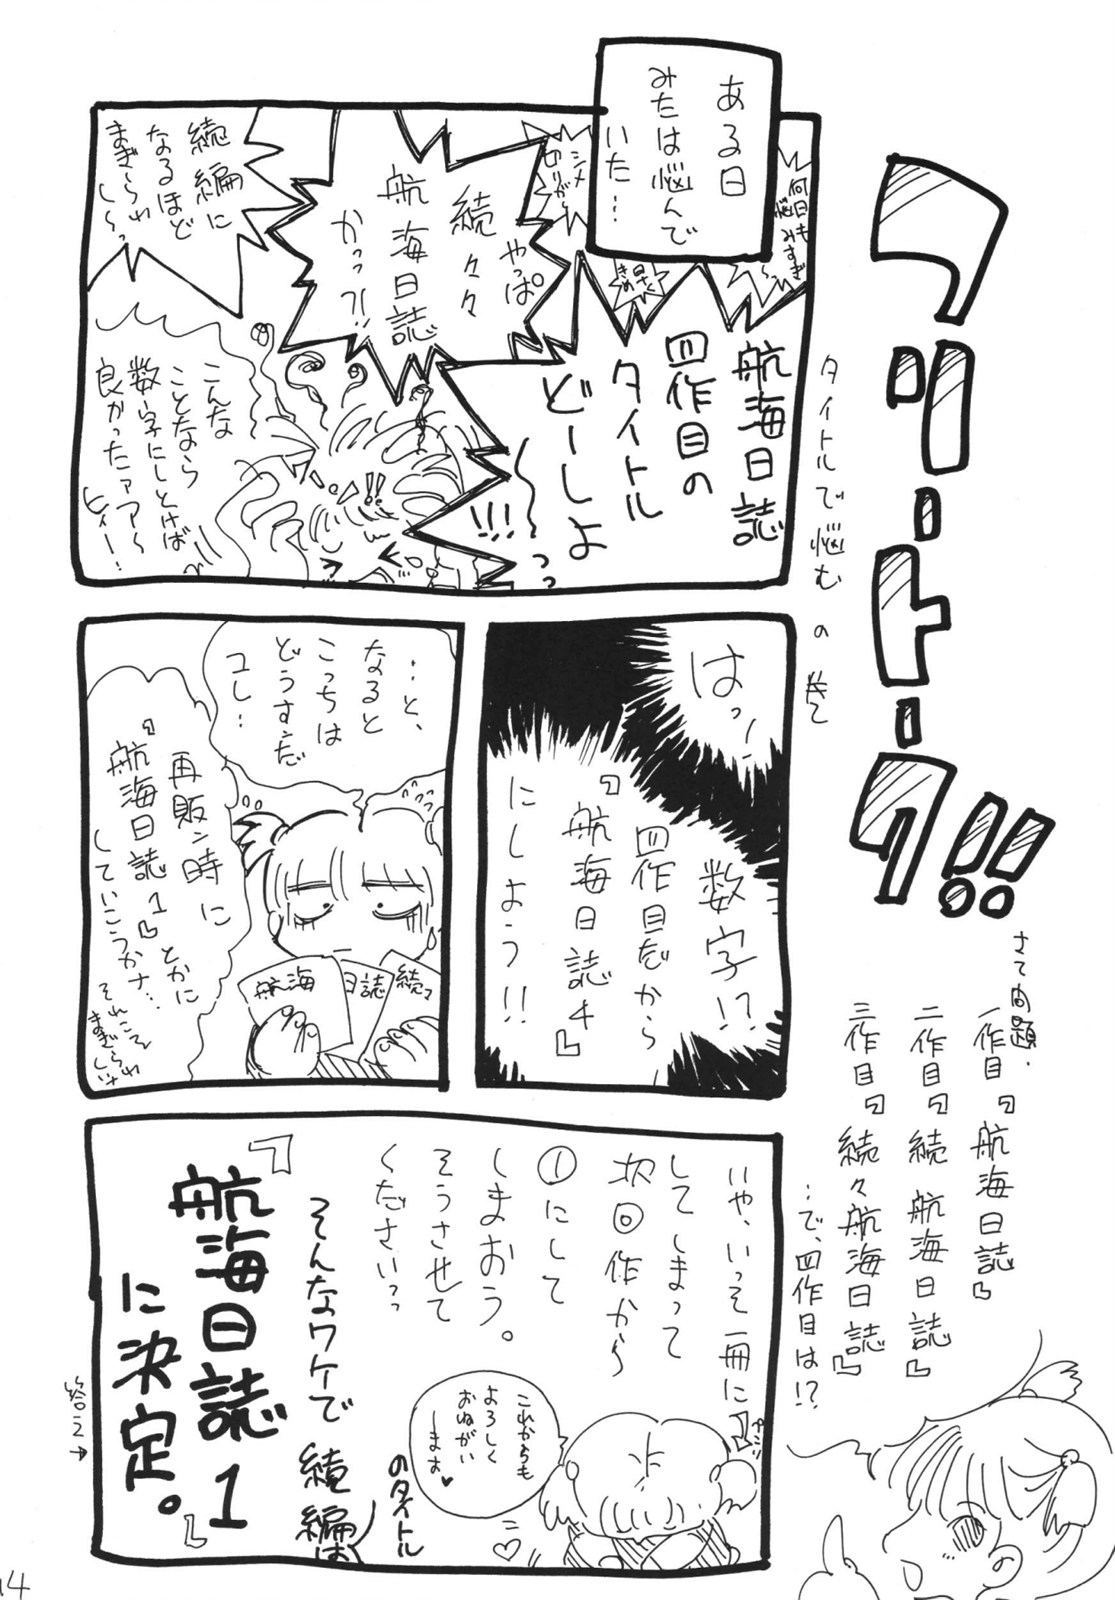 フリートーク!!
タイトルで悩むの巻
さて問題、
一作目『航海日誌』
二作目『続 航海日誌』
三作目『続々航海日誌』
…で、四作目は!?
ある日
みたは悩んで
いた…
何日も
悩みすぎ
シメ
切りが〜
早く
きめ
航海日誌
四作目の
タイトル
どーしよ
〜〜っっ
!!!
やっぱ
続々々
航海日誌
かっ?!!
続編に
なるほど
まぎらわ
し〜っ
こんな
ことなら
数字にしとけば
良かったァァ〜
ヒィー!
はっ!
数字!?
四作目だから
『航海日誌4』
にしよう!!
…と、
なると
こっちは
どうすんだ
コレ…
航海
日誌
続々
再販ン時に
『航海日誌1』とかに
していこうかナ…
それこそ
まぎらわ
しいナ
いや、いっそ一冊に
してしまって
次回作から
①にして
しまおう。
そうさせて
くださいっっ
これからも
よろしく
おねがい
します♥
そんなワケで 続編は
のタイトル
『航海日誌1』
に決定。
14